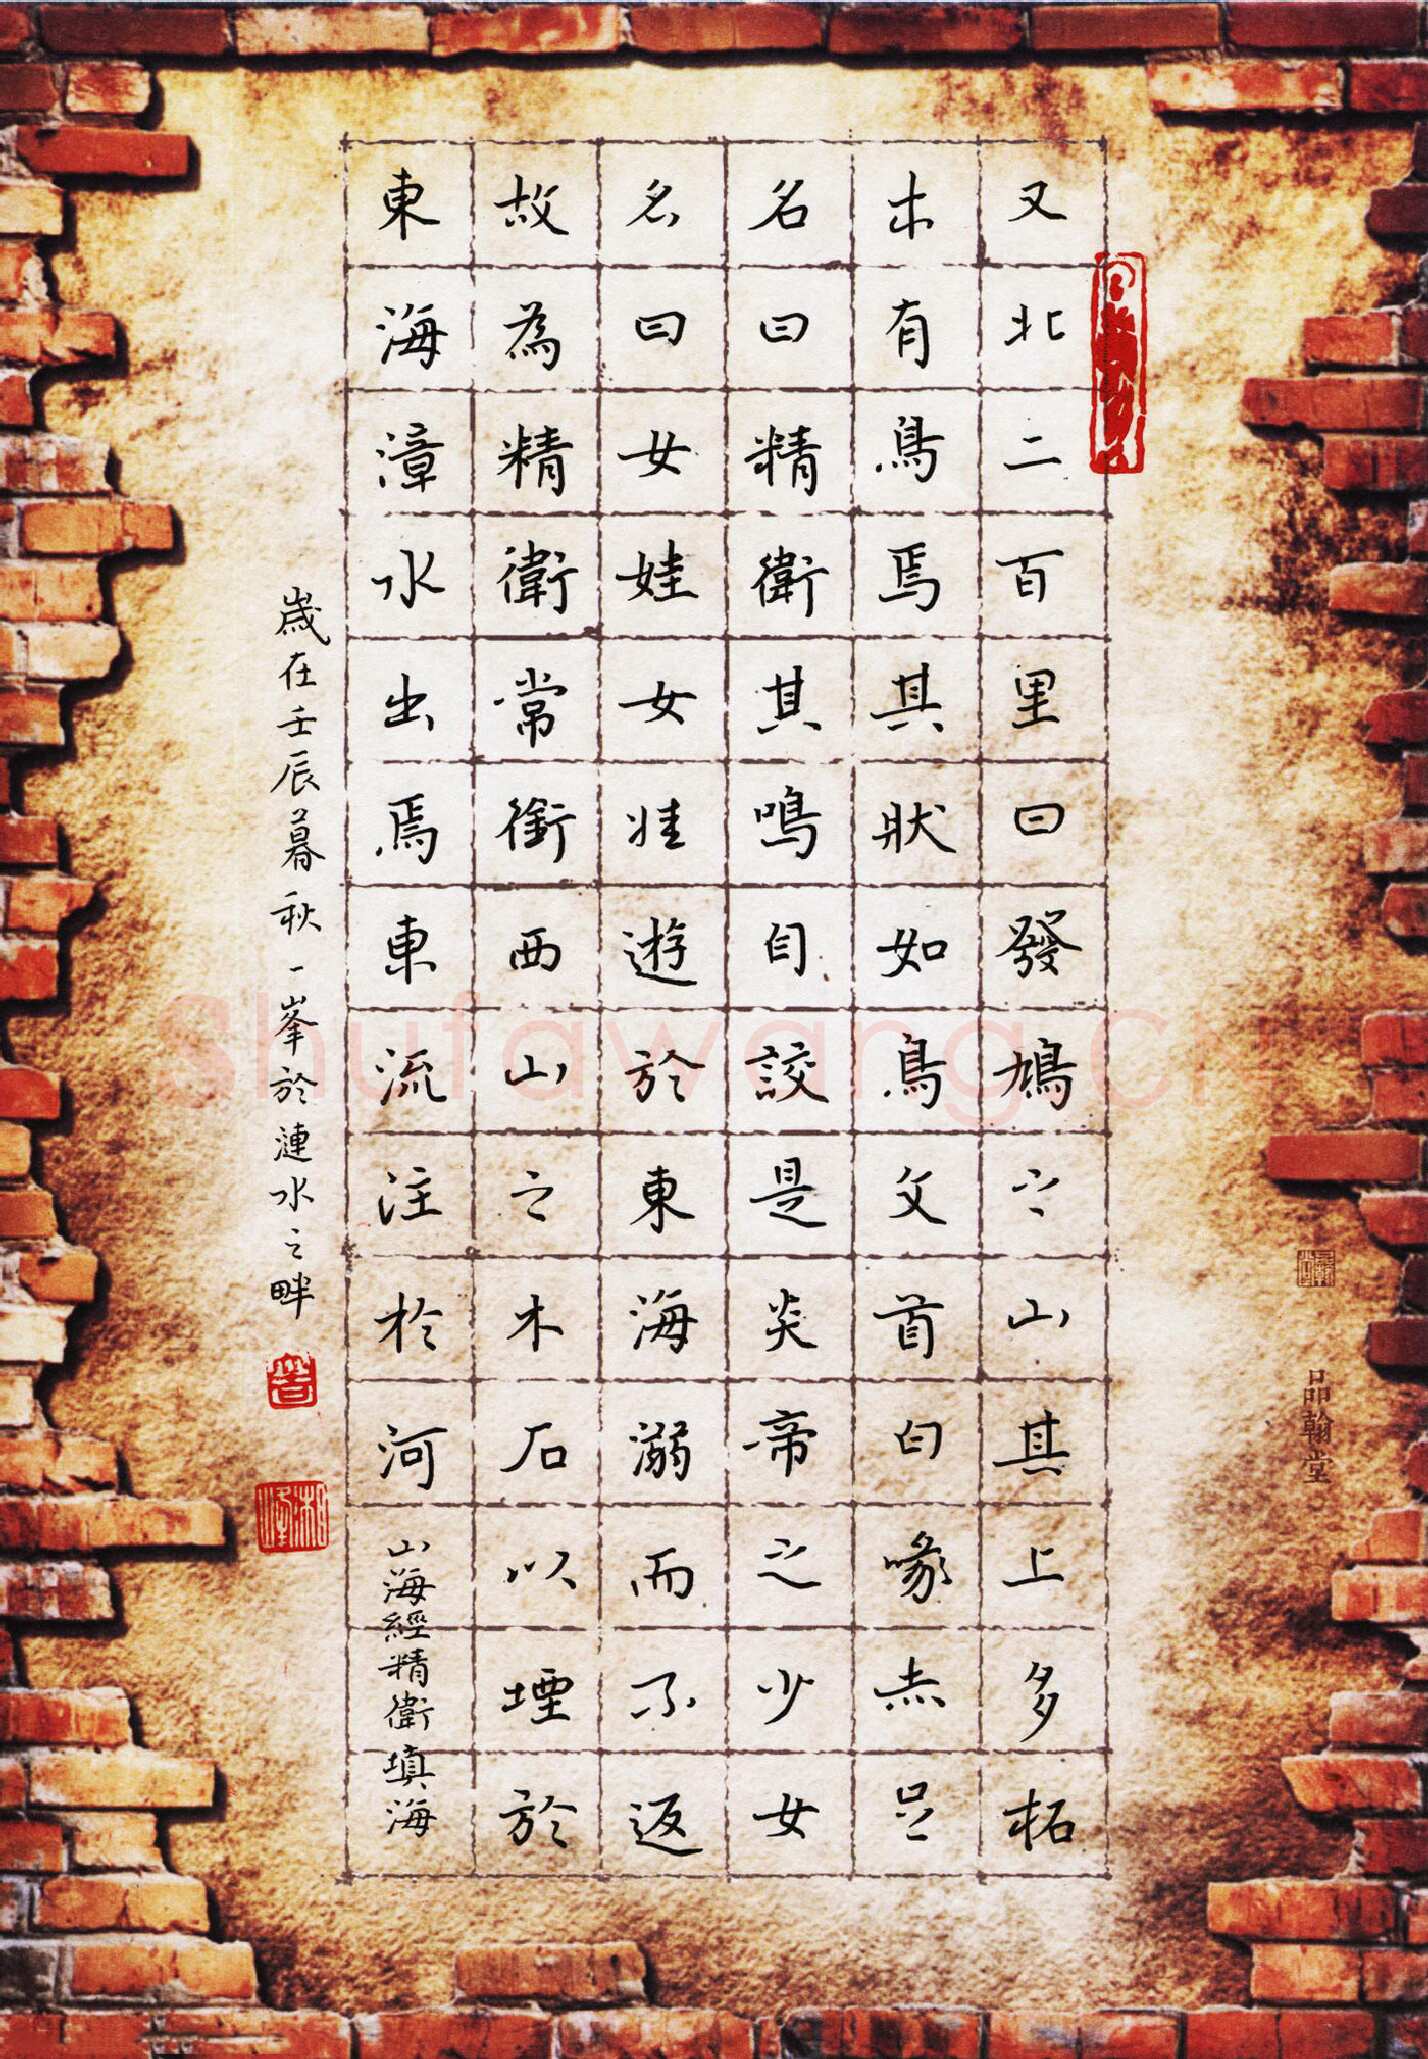 又北二百里曰發鳩之山其上多柘
木有鳥焉其狀如鳥文首白喙赤足
名曰精衛其鳴自詨是炎帝之少女
名曰女娃女娃遊於東海溺而不返
故為精衛常銜西山之木石以堙於
東海漳水出焉東流注於河
山海經精衛填海
歲在壬辰暮秋一峯於漣水之畔
品翰堂
Shufawang.cn